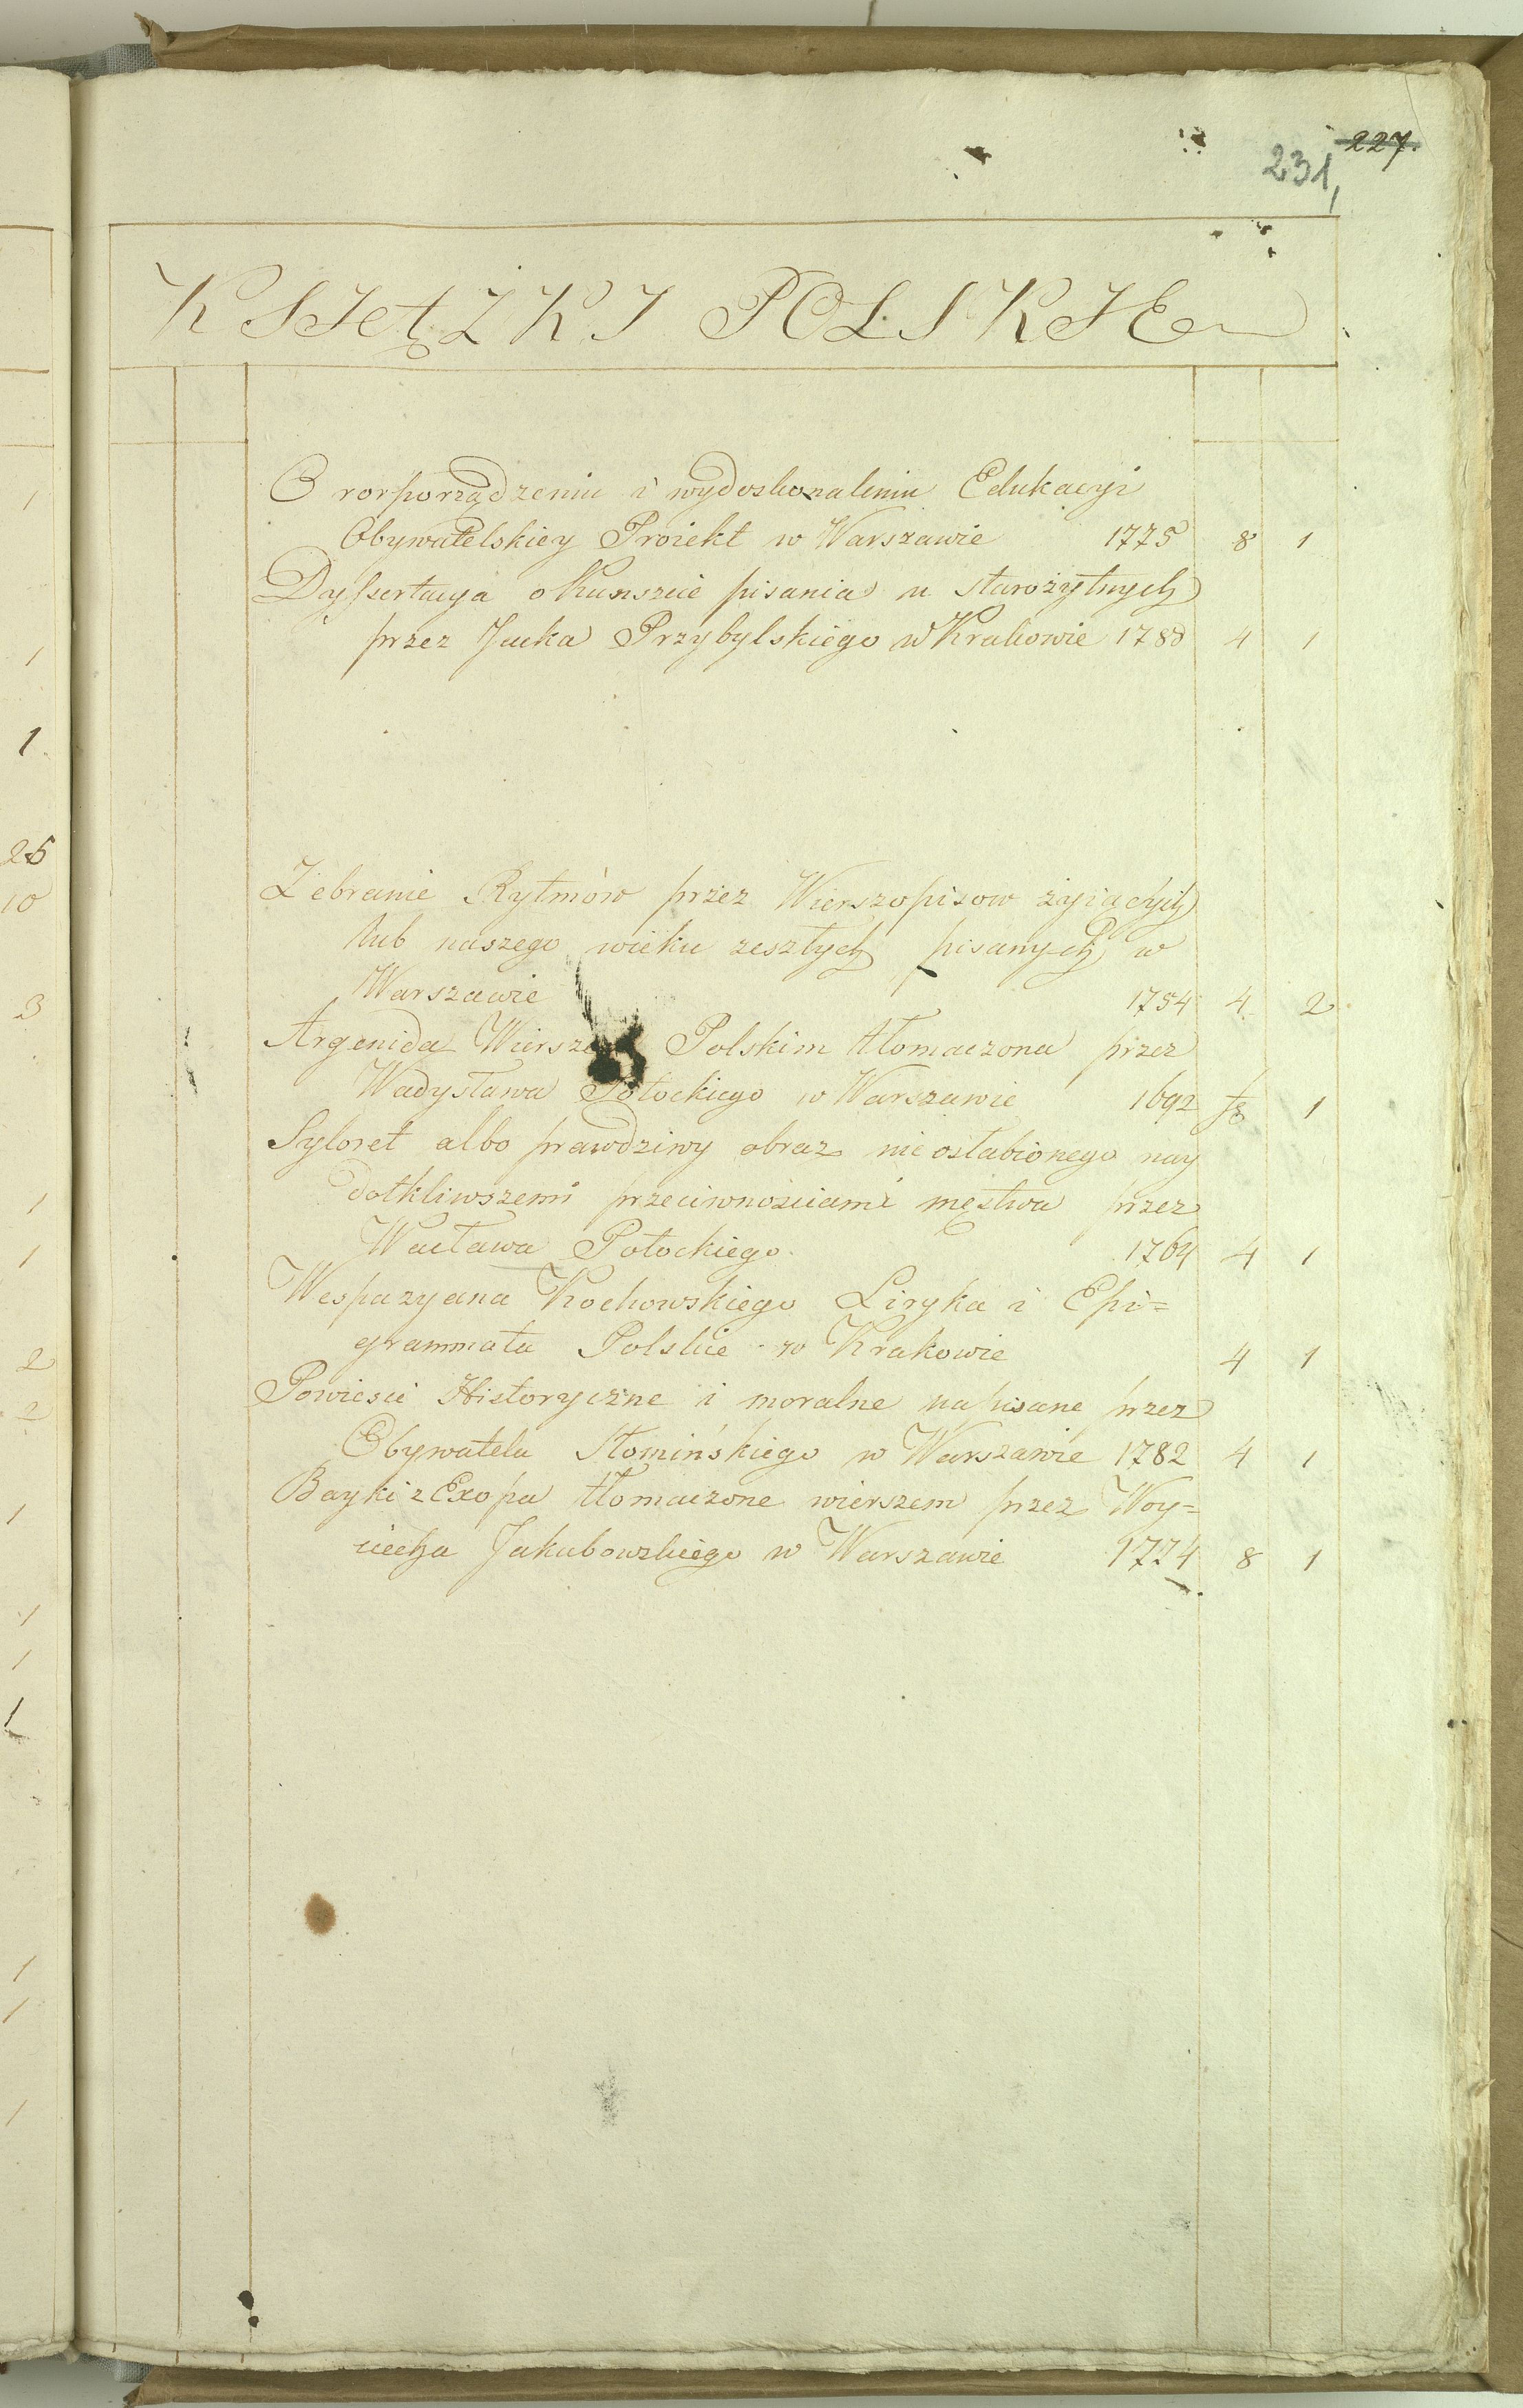 227.
231,
KSIĄŻKI POLSKIE
O rozporządzeniu i wydoskonaleniu Edukacyi
Obywatelskiey Proiekt w Warszawie 1775 8 1
Dyssertacya o Kunszcie pisania u starożytnych
przez Jacka Przybylskiego w Krakowie 1788 4 1
Zebranie Rytmów przez Wierszopisow żyiących
lub naszego wieku zeszłych pisanych w
Warszawie 1754 4 2
Argenida Polskim tłomaczona przez
Wadysława Potockiego w Warszawie 1692 1
Syloret albo prawdziwy obraz nieosłabionego nay
dotkliwszemi przeciwnościami męstwa przez
Wacława Potockiego. 1764 4 1
Wespazyana Kochowskiego Liryka i Epi=
grammata Polskie w Krakowie 4 1
Powieści Historyczne i moralne napisane przez
Obywatela Słomińskiego w Warszawie 1782 4 1
Bayki z Exopa tłomaczone wierszem przez Woy=
ciecha Jakubowskiego w Warszawie 1774 8 1
1
1
1
25
10
3
1
1
2
2
1
1
1
1
1
1
1